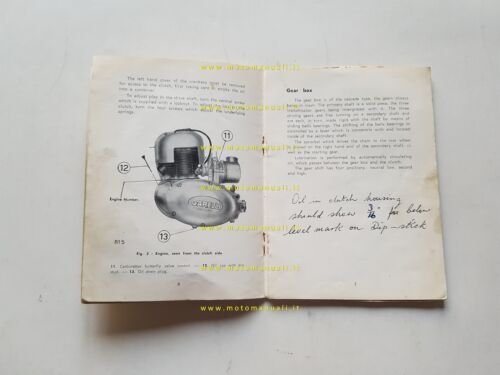 The left hand cover of the crankase must be removed
for access to the clutch, first taking care to empty the oil
into a container.
To adjust plug in the drive shaft, turn the central screw
which is supplied with a locknut. To adjust the
clutch, turn the four screws which are under the
springs.
11
12
Engine Number.
GARELLI
13
R15
Fig. 5 - Engine, seen from the clutch side
11. Carburettor butterfly valve control — 12. Oil cap with dip
stick — 13. Oil drain plug.
6
www.motomanuali.it
www.motomanuali.it
www.motomanuali.it
Gear box
The gear box is of the cascade type, the gears always
being in mesh. The primary shaft is a solid piece, the three
transmission gears being integrated with it. The three
driving gears are free turning on a secondary shaft and
are each, in turn, made rigid with the shaft by means of
sliding balls bearings. The shifting of the balls bearings is
controlled by a lever which is concentric with and located
inside of the secondary shaft.
The sprocket which drives the chain to the rear wheel
is fitted on the right hand end of the secondary shaft as
well as the starting gear.
Lubrication is performed by automatically circulating
oil, which passes between the gear box and the clutch.
The gear shift has four positions: neutral low, second
and high.
Oil in clutch housing
should show 3/16" for below
level mark on Dip-stick
7